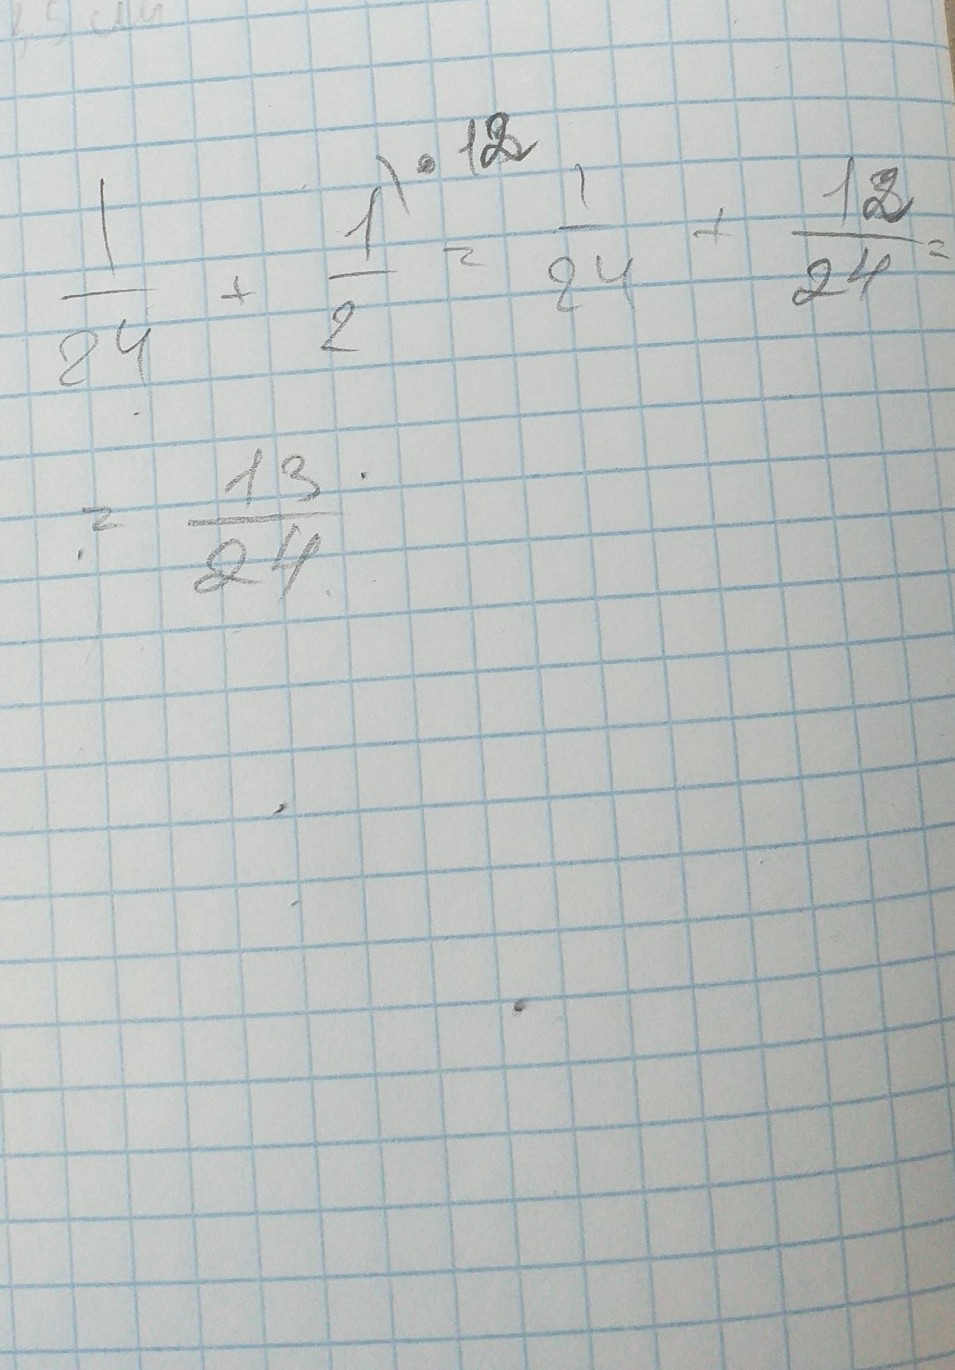 1/24 + 1/2 \ · 12 = 1/24 + 12/24 =
= 13/24